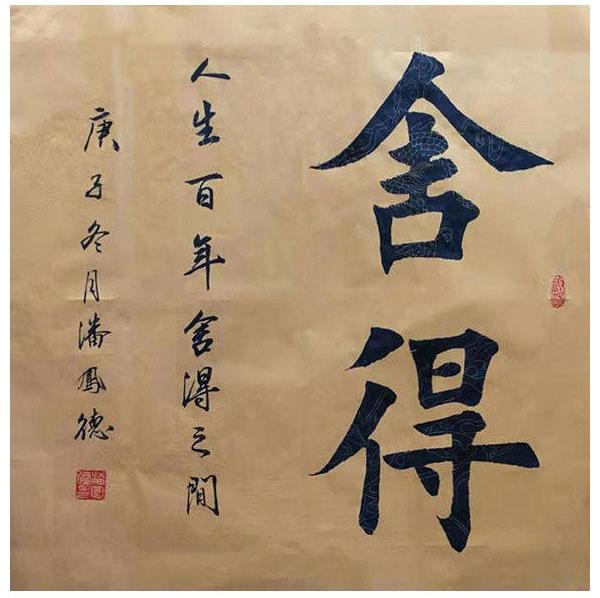 舍得
人生百年舍得之間
庚子冬月潘鳳德